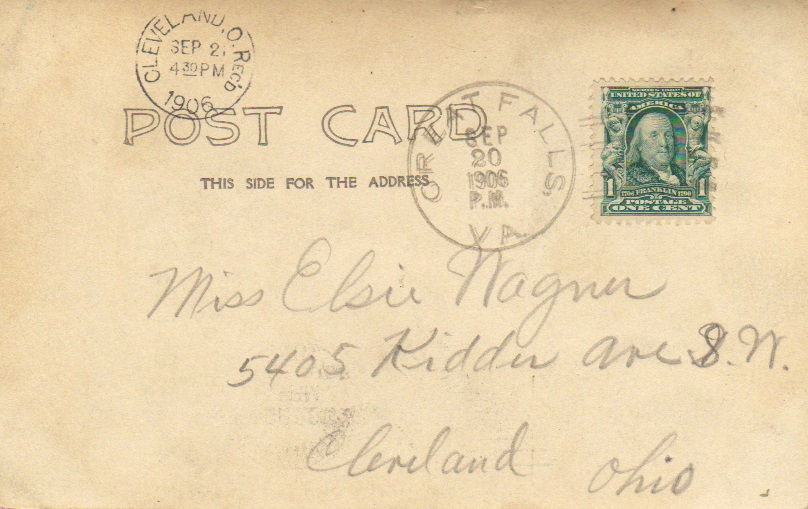 CLEVELAND, O. REC'D
SEP 21
4 30 PM
1906
POST CARD
THIS SIDE FOR THE ADDRESS
GREAT FALLS,
SEP
20
1906
P.M.
VA.
SERIES 1902
UNITED STATES OF
AMERICA
1 FRANKLIN 1
POSTAGE
ONE CENT
Miss Elsie Wagner
5405 Kidder ave S.W.
Cleveland Ohio